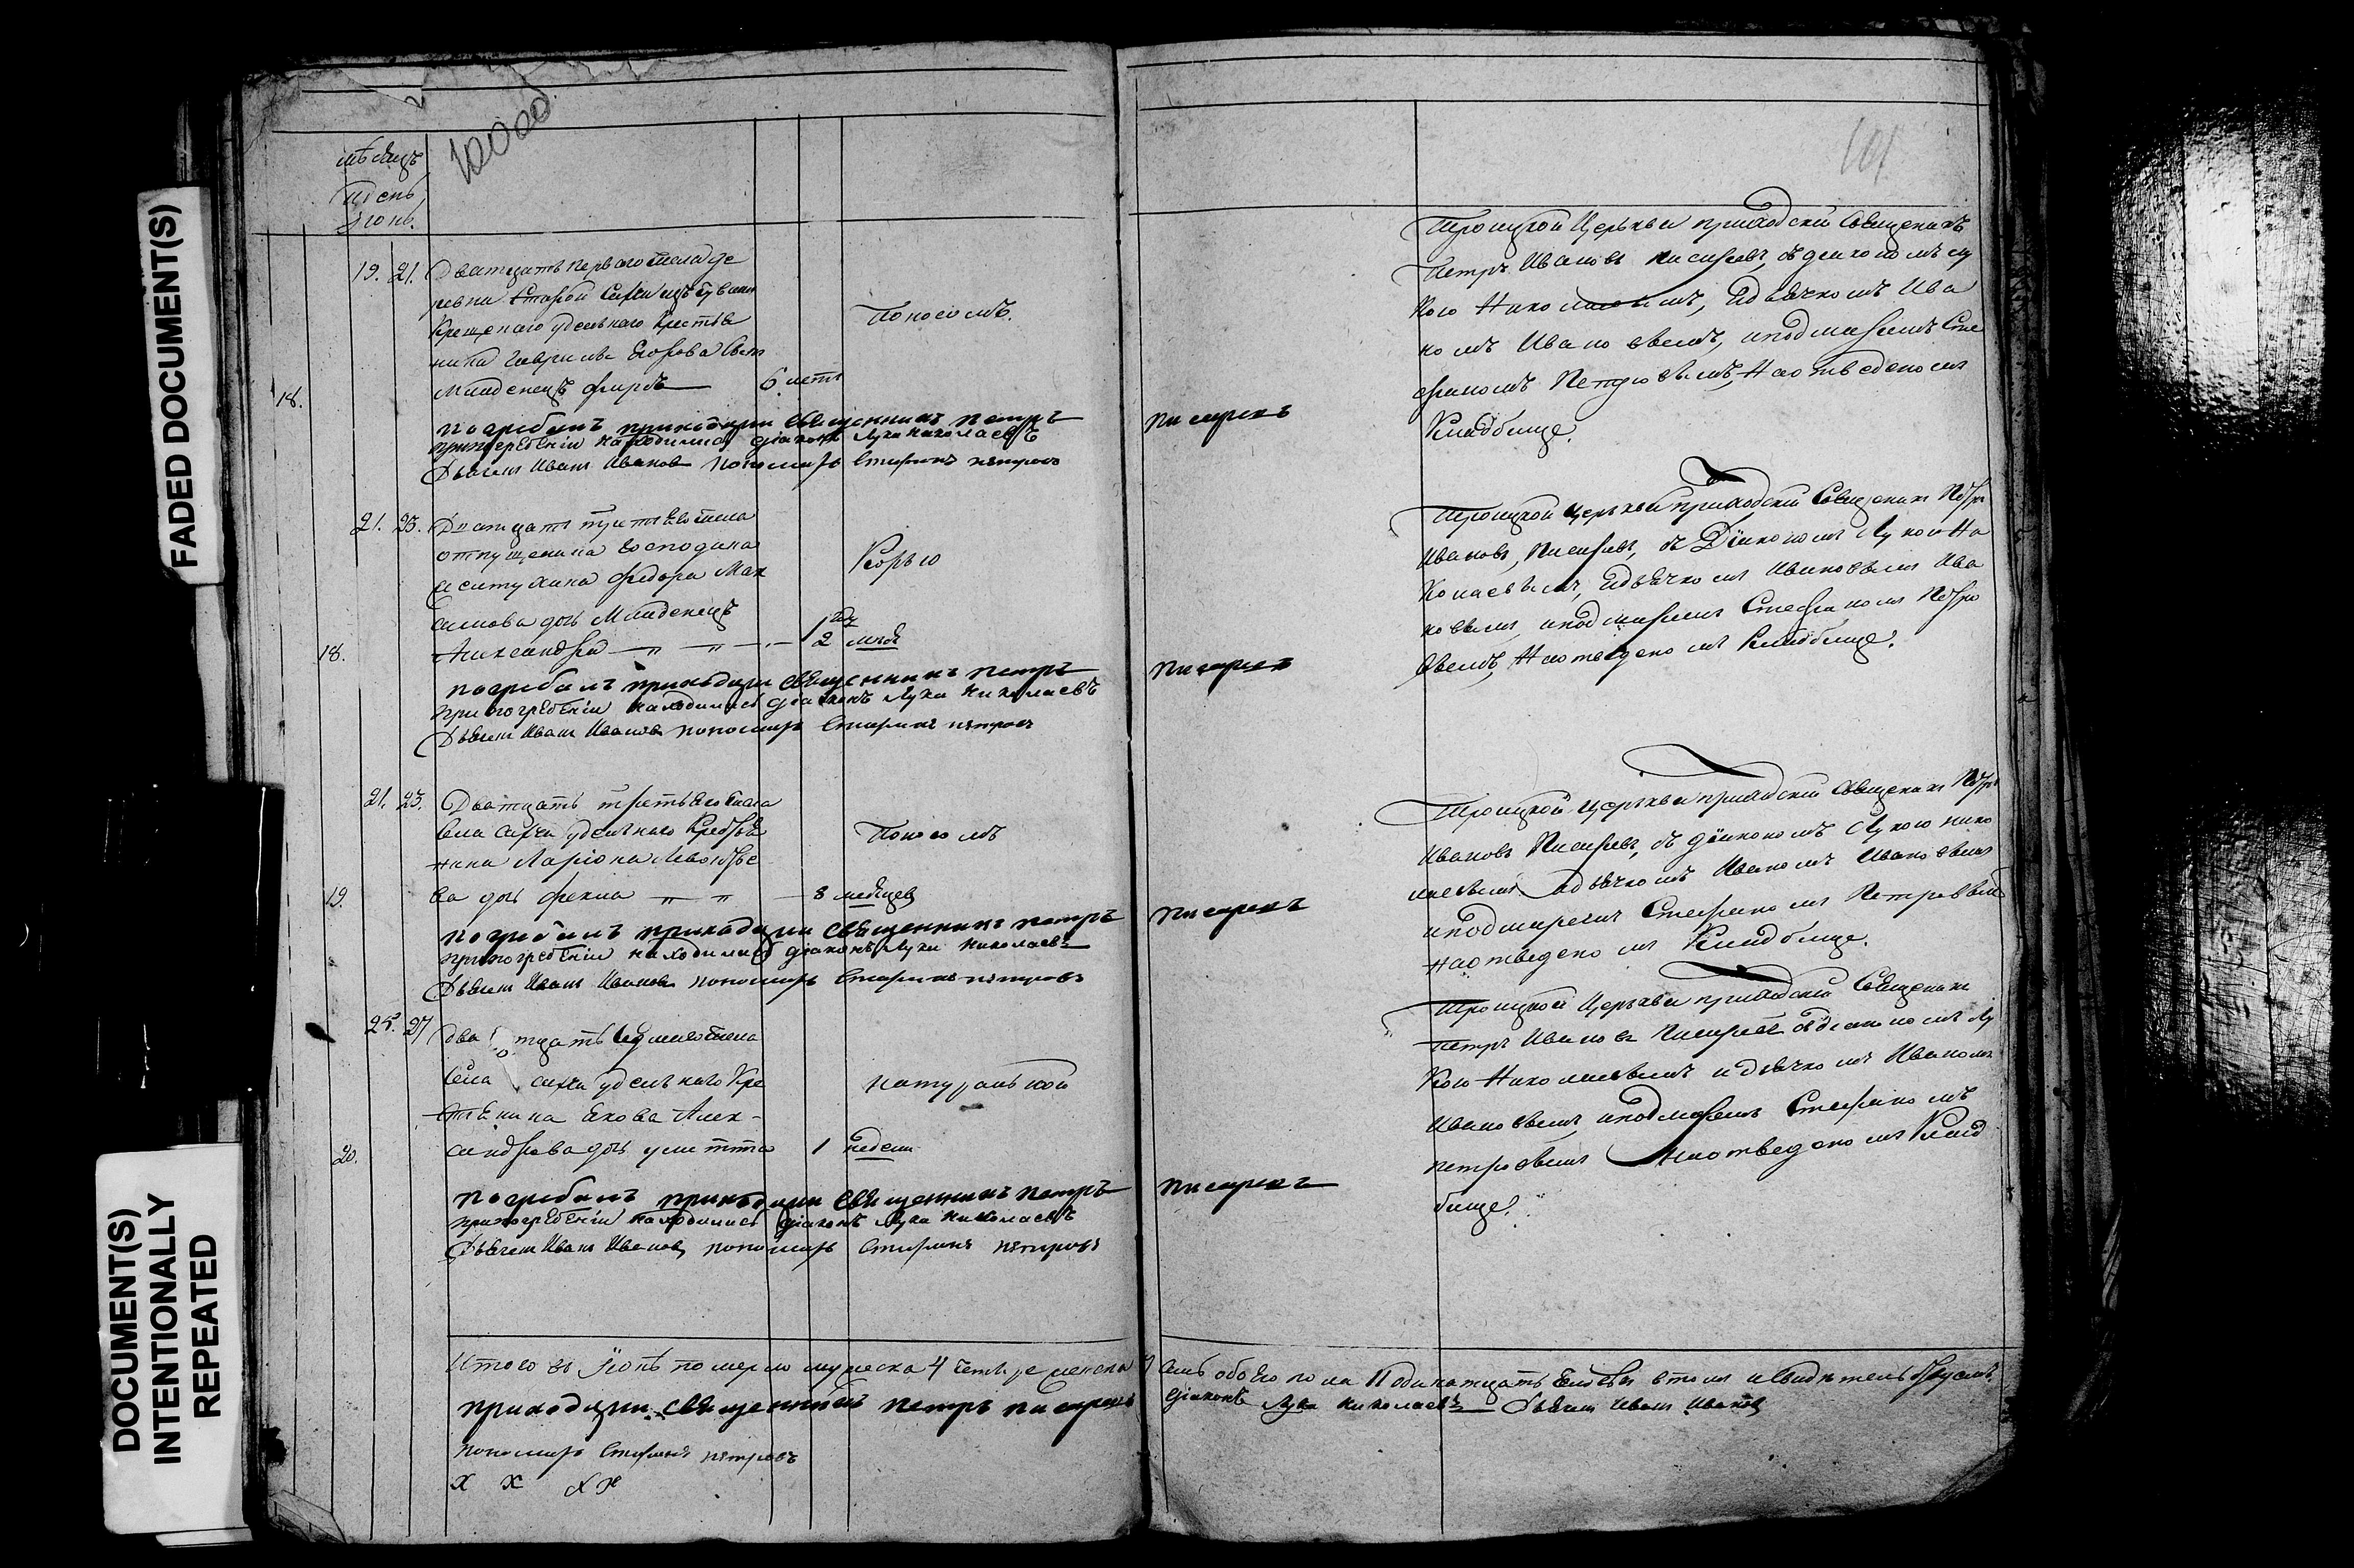 FADED DOCUMENT(S)
DOCUMENT(S)
INTENTIONALLY
REPEATED
101
мѣсяцъ
и день
Іюнь.
19. 21. Дватцать перваго числа де
ревни Старой
крещенаго удельнаго крестья
нина Гаврила Егорова сынъ
младенецъ 6 летъ
Поносомъ.
18.
погребалъ приходции священникъ петръ писаревъ
при погребеніи находились діаконъ Лука николаевъ
Дьячекъ Иванъ Ивановъ пономарь Стефанъ петровъ
Троицкой Церькви приходскій Священикъ
Петръ Ивановъ Писаревъ, съ діакономъ Лу
кою Николаевымъ, и дьячкомъ Ива
номъ Ивановымъ, и подмаремъ Сте
фаномъ Петровымъ, На отведеномъ
Кладбище.
21. 23. Дватцать третьево числа
отпущенина Господина
Федора Мак
симова дочь Младенецъ
Александра 1 год 2 мес
Корью
18.
погребалъ приходции священникъ петръ писаревъ
при погребеніи находились діаконъ Лука Николаевъ
Дьячекъ Иванъ Ивановъ пономарь Стефанъ петровъ
Троицкой церькви приходскій Священикъ Петръ
Ивановъ Писаревъ, съ Діакономъ Лукою Ни
колаевымъ, и дьячкомъ Ивановымъ Ива
новымъ и подмаремъ Стефаномъ Петро
вымъ, На отведеномъ Кладбище.
21. 23. Дватцать третьяго числа
села удельнаго Крестья
нина Ларіона
ва дочь Фекла 8 месяцев
Поносомъ
19.
погребалъ приходции священникъ петръ писаревъ
при погребеніи находились діаконъ Лука Николаевъ
Дьячекъ Иванъ Ивановъ пономарь Стефанъ петровъ
Троицкой Церькви приходскій Священикъ Петръ
Ивановъ Писаревъ, съ діакономъ Лукою Нико
лаевымъ и дьячкомъ Иваномъ Ивановымъ
и подмаремъ Стефаномъ Петровымъ
На отведеномъ Кладбище.
25. 27 Дватцать седмаго числа
села удельнаго Кре
стьянина Якова Алек-
сандрова дочь 1 недели
натуральной
20.
погребалъ приходции священникъ петръ писаревъ
при погребеніи находились діаконъ Лука Николаевъ
Дьячекъ Иванъ Ивановъ пономарь Стефанъ петровъ
Троицкой Церькви приходскій Священикъ
Петръ Ивановъ Писаревъ съ діакономъ Лу
кою Николаевымъ и дьячкомъ Иваномъ
Ивановымъ и подмаремъ Стефаномъ
петровымъ На отведеномъ Клад
бище.
Итого въ Іюнѣ померло мужеска 4 женска 7 обоего пола 11 одинатцать
приходции священникъ петръ писаревъ діаконъ Лука николаевъ Дьячекъ Иванъ Ивановъ
пономарь Стефанъ петровъ
х х х х